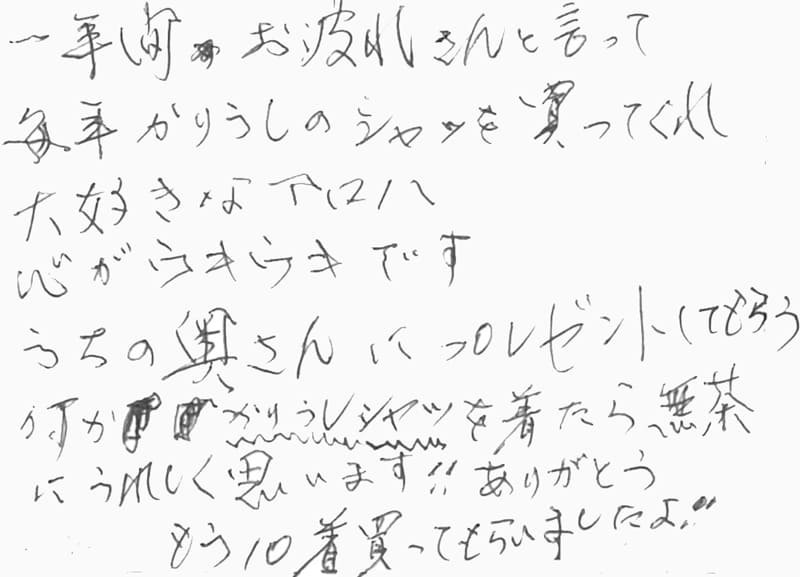 一年間 お疲れさんと言って
毎年かりうしのシャツを買ってくれ
大好きなアロハ
心がウキウキです
うちの奥さんにプレゼントしてもらう
何か かりうしシャツを着たら無茶
にうれしく思います!!ありがとう
もう10着買ってもらいましたよ!!